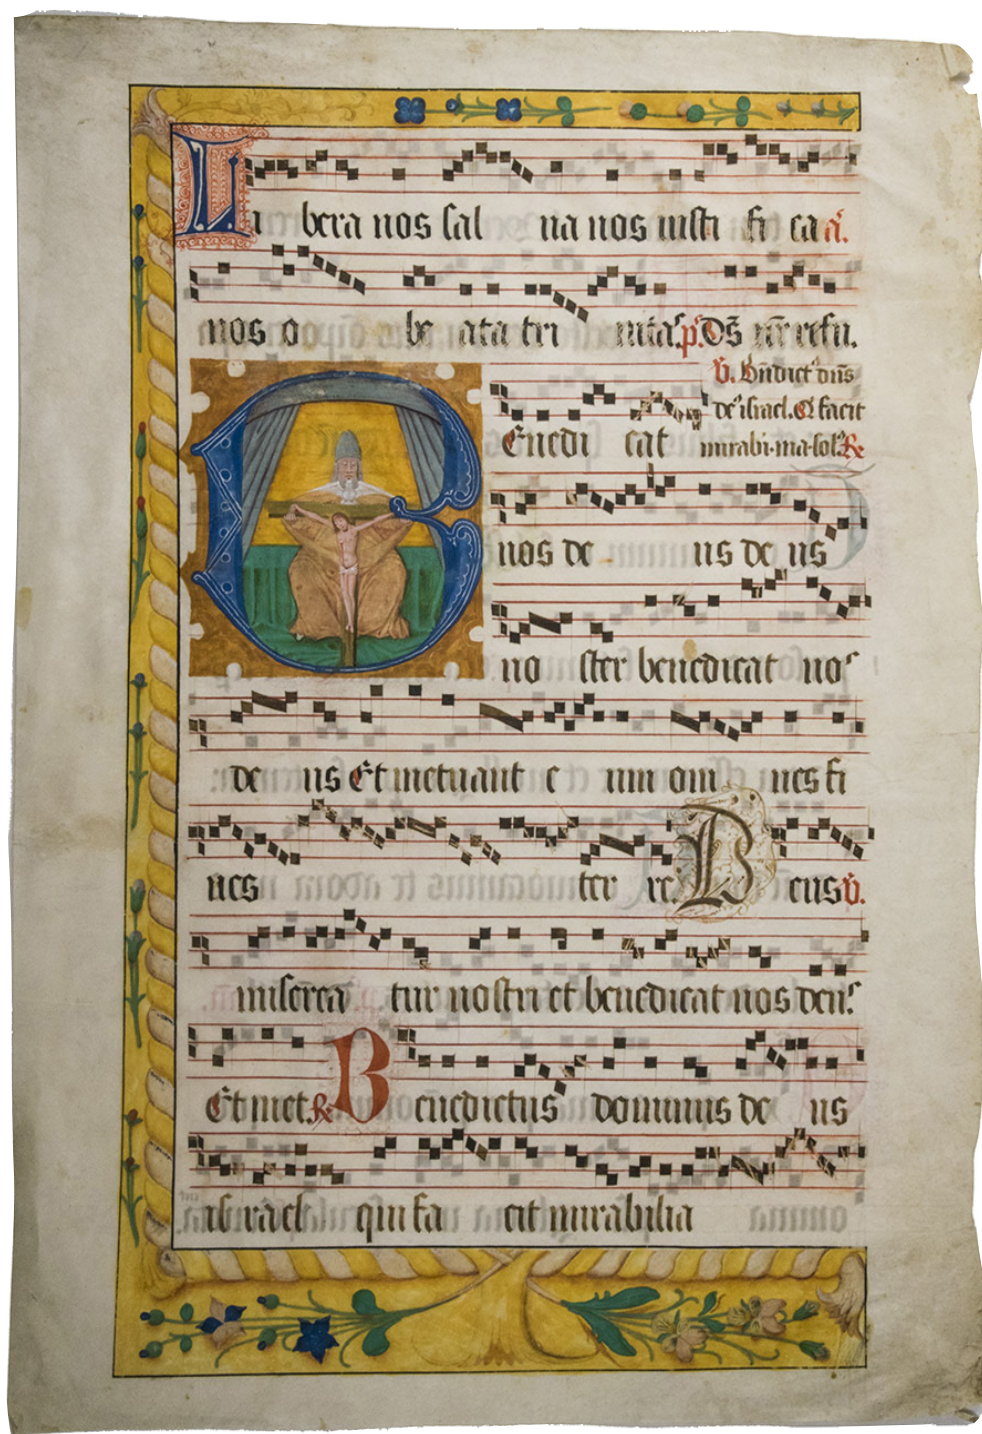 Li bera nos sal ua nos iusti fi ca a.
nos o be ata tri nitas. p̄s. Ds̄ nr̄ refu.
V. Bn̄dict' dn̄s
de' israel. Q facit
Enedi cat mirabi. ma. sol'. R
nos de us de us
no ster benedicat nos
de us Et metuant e um om nes fi
nes ter re. D eus V.
miserea tur nostri et benedicat nos deus.
Et met. R B enedictus dominus de us
isrrael qui fa cit mirabilia